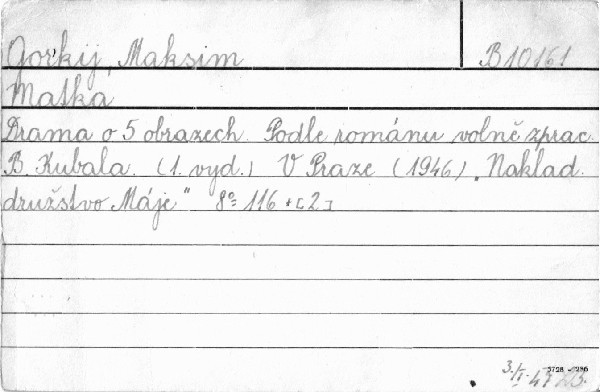 Gorkij, Maksim B10161
Matka
Drama o 5 obrazech. Podle románu volně zprac.
B. Kubala. (1. vyd.) V Praze (1946) „Naklad.
družstvo Máje" 8° 116 + [2]
3728 - 296